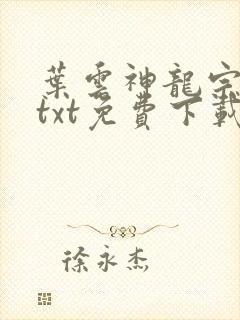 葉雲神龍宗
txt免費下載
徐永杰